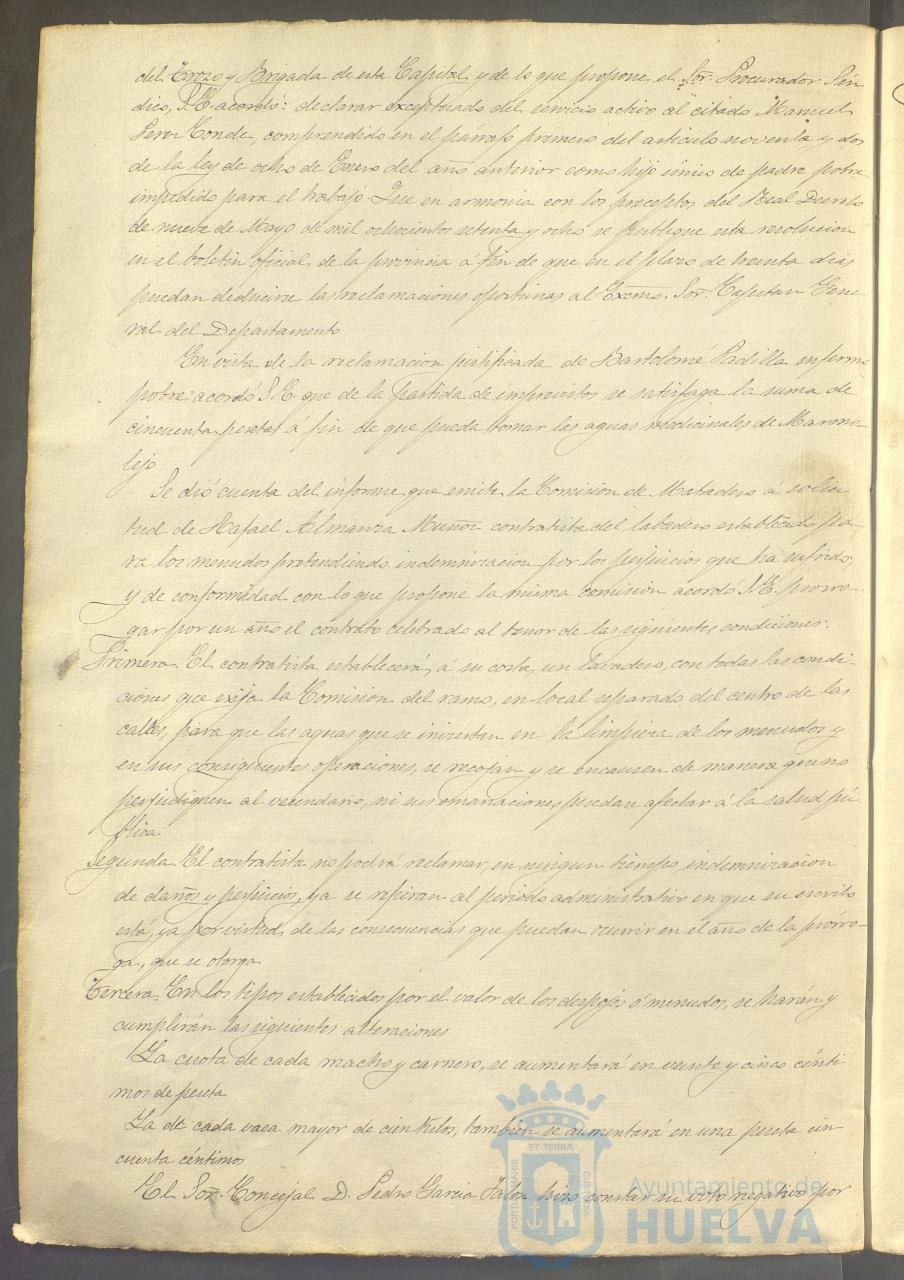 del Trozo y Brigada de esta Capital y de lo que propone el Sor. Procurador Sín
dico, S.E. acordó: declarar exceptuado del servicio activo al citado Manuel
Pero Conde, comprendido en el párrafo primero del artículo noventa y dos
de la ley de ocho de Enero del año anterior como hijo único de padre pobre
impedido para el trabajo. Que en armonia con los preceptos del Real Decreto
de nueve de Mayo de mil ochocientos setenta y ocho se publique esta resolucion
en el boletin oficial de la provincia á fin de que en el plazo de treinta dias
puedan deducirse las reclamaciones oportunas al Excmo. Sor. Capitan Gene
ral del Departamento
En vista de la reclamacion justificada de Bartolomé Padilla enfermo
pobre acordó S.E. que de la partida de imprevistos se satisfaga la suma de
cincuenta pesetas á fin de que pueda tomar las aguas medicinales de Marmo-
lejo
Se dió cuenta del informe que emite la Comision de Matadero á solici
tud de Rafael Almanza Muñoz contratista del labadero establecido pa-
ra los menudos pretendiendo indemnizacion por los perjuicios que ha sufrido,
y de conformidad con lo que propone la misma comision acordó S.E. prorro-
gar por un año el contrato celebrado al tenor de las siguientes condiciones.
Primera. El contratista establecerá, á su costa, un lavadero, con todas las condi-
ciones que exija la Comision del ramo, en local separado del centro de las
calles, para que las aguas que se inviertan en la limpieza de los menudos y
en sus consiguientes operaciones, se recojan y se encausen de manera que no
perjudiquen al vecindario, ni sus emanaciones puedan afectar á la salud pú
blica
Segunda. El contratista no podrá reclamar, en ningun tiempo, indemnizacion
de daños y perjuicios, ya se refieran al periodo administrativo en que su escrito
está, ya por virtud de las consecuencias que puedan ocurrir en el año de la prórro-
ga, que se otorga
Tercera. En los tipos establecidos por el valor de los despojos ó menudos, se harán y
cumplirán las siguientes alteraciones
La cuota de cada macho y carnero, se aumentará en veinte y cinco cénti
mos de peseta
La de cada vaca mayor de cien kilos, tambien se aumentará en una peseta cin
cuenta céntimos
El Sor. Concejal D. Pedro Garcia Jalon hizo constar su voto negativo por
PORTUS MARIS ET TERRÆ CUSTODIA
Ayuntamiento de
HUELVA